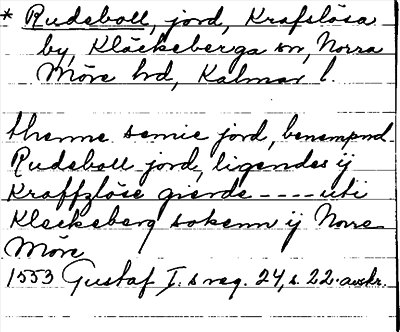 * Rudeboll, jord, Krafslösa
by, Kläckeberga sn, Norra
Möre hd, Kalmar l.
thenne samie jord, benempnd
Rudeboll jord, ligendes ij
Kraffzlöse gierde ---- uti
Kleckeberg sokenn ij Norre
Möre
1553 Gustaf I.s reg. 24, s. 22. avskr.